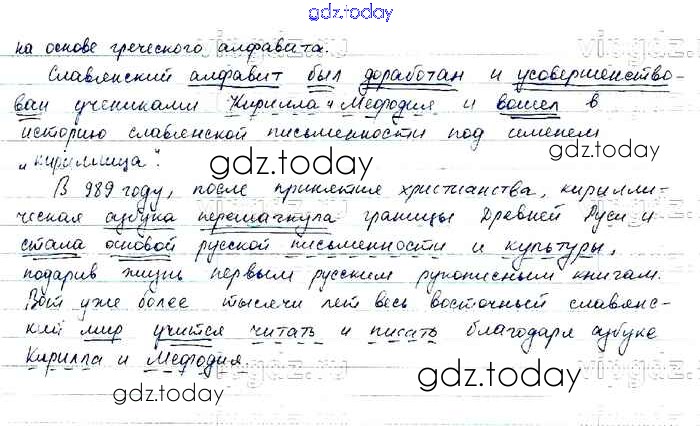 gdz.today
на основе греческого алфавита.
Славянский алфавит был доработан и усовершенство-
ван учениками Кирилла и Мефодия и вошел в
историю славянской письменности под именем
„кириллица“.
gdz.today
gdz.today
В 989 году, после принятия христианства, кирилли-
ческая азбука перешагнула границы Древней Руси и
стала основой русской письменности и культуры,
gdz.today
подарив жизнь первым русским рукописным книгам.
Вот уже более тысячи лет весь восточный славянс-
кий мир учится читать и писать благодаря азбуке
Кирилла и Мефодия
gdz.today
gdz.today